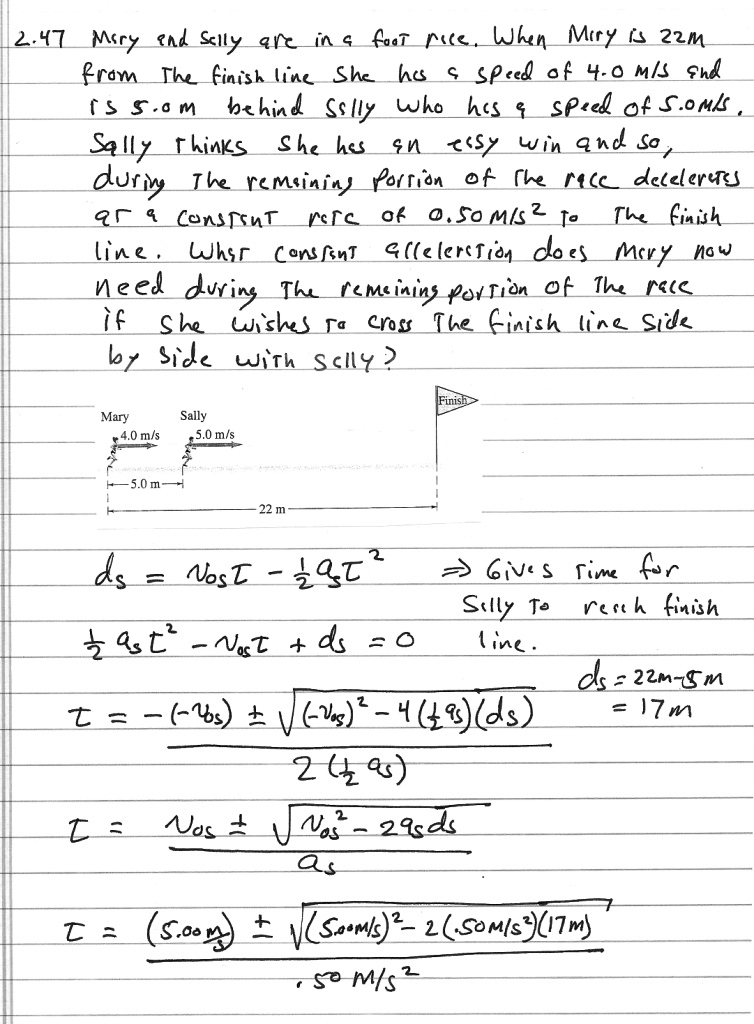 2.47 Mary and Sally are in a foot race. When Mary is 22m
from The finish line She has a speed of 4.0 m/s and
is 5.0m behind Sally who has a speed of 5.0m/s.
Sally Thinks She has an easy win and so,
during The remaining Portion of The race decelerates
at a constant rate of 0.50 m/s² to The finish
line. What constant acceleration does Mary now
need during The remaining portion of The race
if She wishes to cross The finish line side
by side with Sally?
Finish
Mary Sally
4.0 m/s 5.0 m/s
5.0 m
22 m
ds = Vost - ½ ast² ⇒ Gives Time for
Sally To reach finish
½ ast² - Vost + ds = 0 line.
ds = 22m-5m
= 17m
t = -(-Vos) ± √(-Vos)² - 4(½ as)(ds)
2(½ as)
t = Vos ± √Vos² - 2asds
as
t = (5.00 m/s) ± √(5.00m/s)² - 2(.50m/s²)(17m)
.50 m/s²